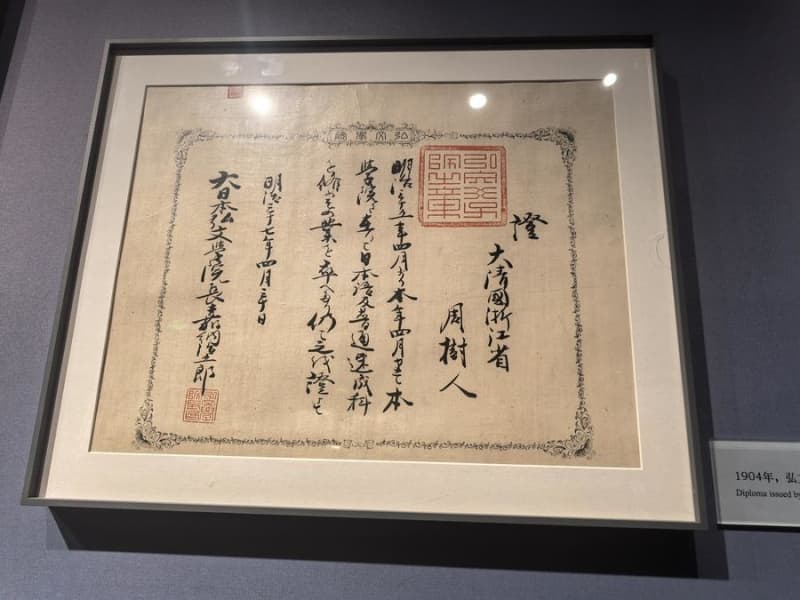 弘文學院
證
大清國浙江省
周樹人
明治三十五年四月より本年四月まて本
學院に在りて日本語及普通速成科
を修め其業を卒へたり仍て之を證す
明治三十七年四月三十日
大日本弘文學院長嘉納治五郎
1904年，弘
Diploma issued by